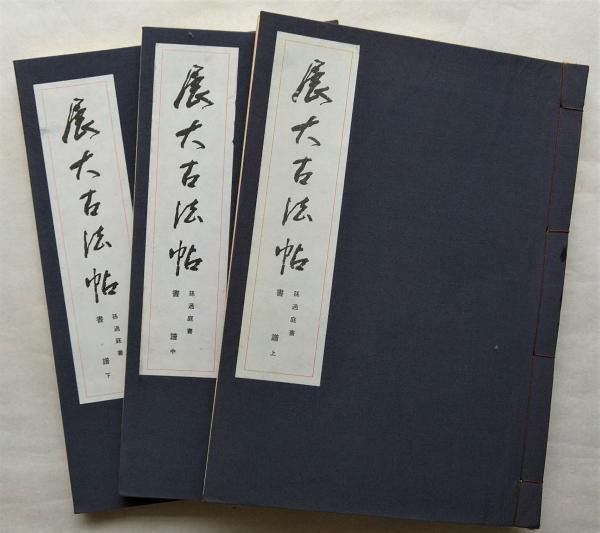 展大古法帖
孫過庭書
書譜上
展大古法帖
孫過庭書
書譜中
展大古法帖
孫過庭書
書譜下